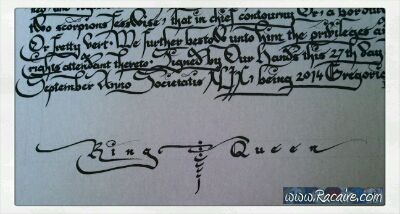 two scorpions fesswise, that in chief contourny Or, a bordure
Or fretty vert. We further bestow unto him the privileges a
rights attendant thereto. Signed by Our Hands this 27th day
September Anno Societatis XLIX, being 2014 Gregoria
King Queen
www.Racaire.com